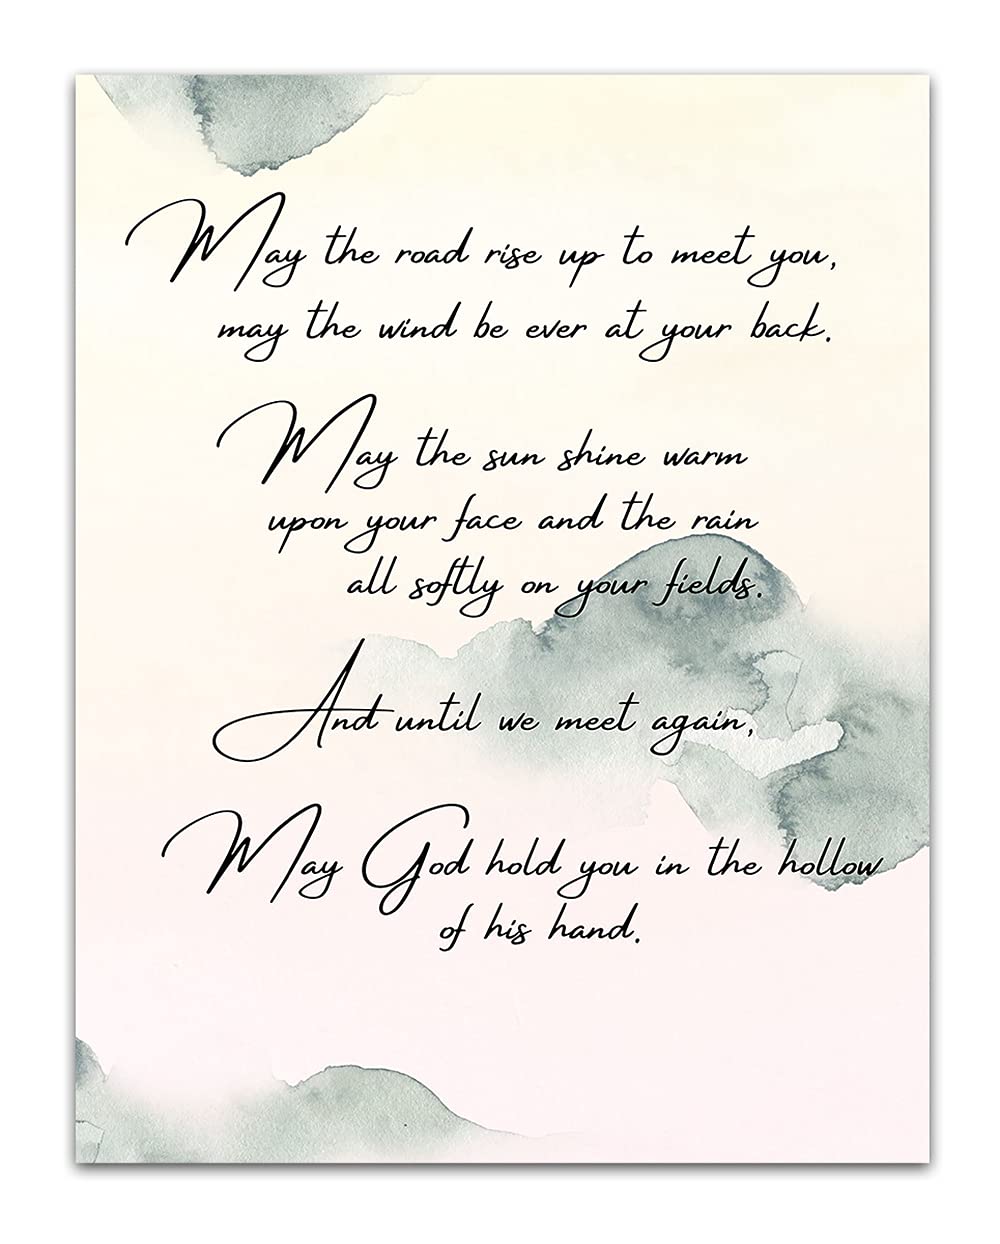 May the road rise up to meet you,
may the wind be ever at your back.
May the sun shine warm
upon your face and the rain
all softly on your fields.
And until we meet again,
May God hold you in the hollow
of his hand.